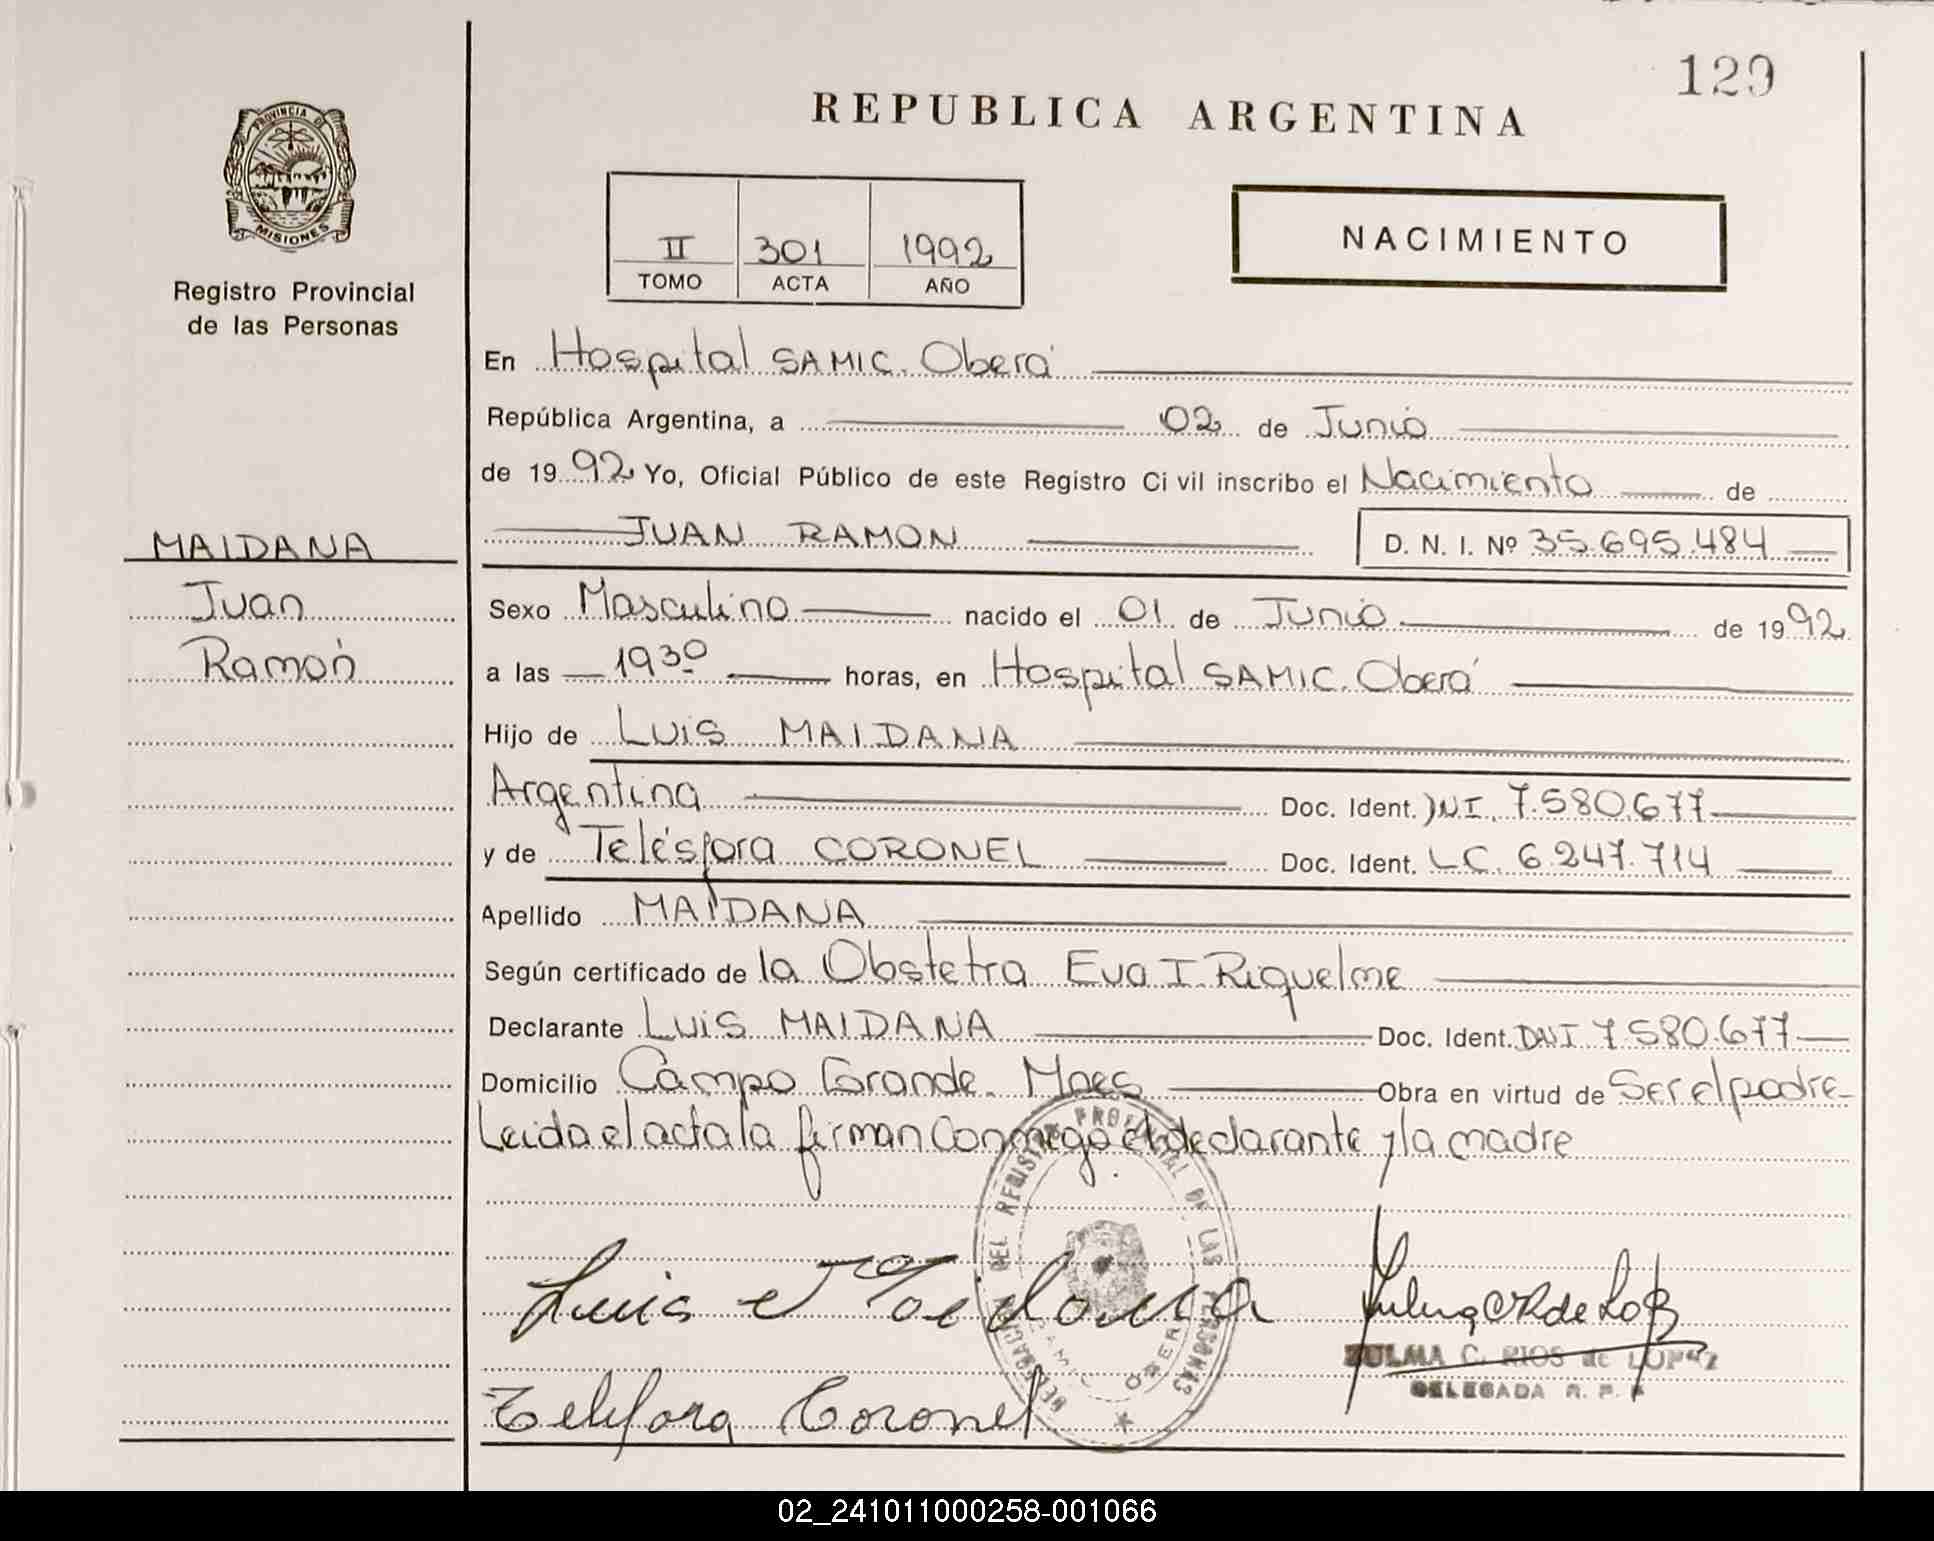 129
REPUBLICA ARGENTINA
PROVINCIA DE
MISIONES
Registro Provincial
de las Personas
II 301 1992
TOMO ACTA AÑO
NACIMIENTO
En Hospital SAMIC. Oberá
República Argentina, a 02 de Junio
de 1992 Yo, Oficial Público de este Registro Civil inscribo el Nacimiento de
JUAN RAMON D. N. I. Nº 35.695.484
MAIDANA
Juan
Ramón
Sexo Masculino nacido el 01 de Junio de 1992
a las 19 30 horas, en Hospital SAMIC. Oberá
Hijo de LUIS MAIDANA
Argentina Doc. Ident. DNI. 7.580.677
y de Telésfora CORONEL Doc. Ident. LC. 6.247.714
Apellido MAIDANA
Según certificado de la Obstetra Eva I. Riquelme
Declarante LUIS MAIDANA Doc. Ident. DNI 7.580.677
Domicilio Campo Grande. Mnes Obra en virtud de Ser el padre-
Leida el acta la firman Conmigo el declarante y la madre
DELEGACION DEL REGISTRO PROVINCIAL DE LAS PERSONAS
OBERA
Luis Maidana
Telesfora Coronel
ZULMA C. RIOS de LOPEZ
DELEGADA R. P. P
02_241011000258-001066